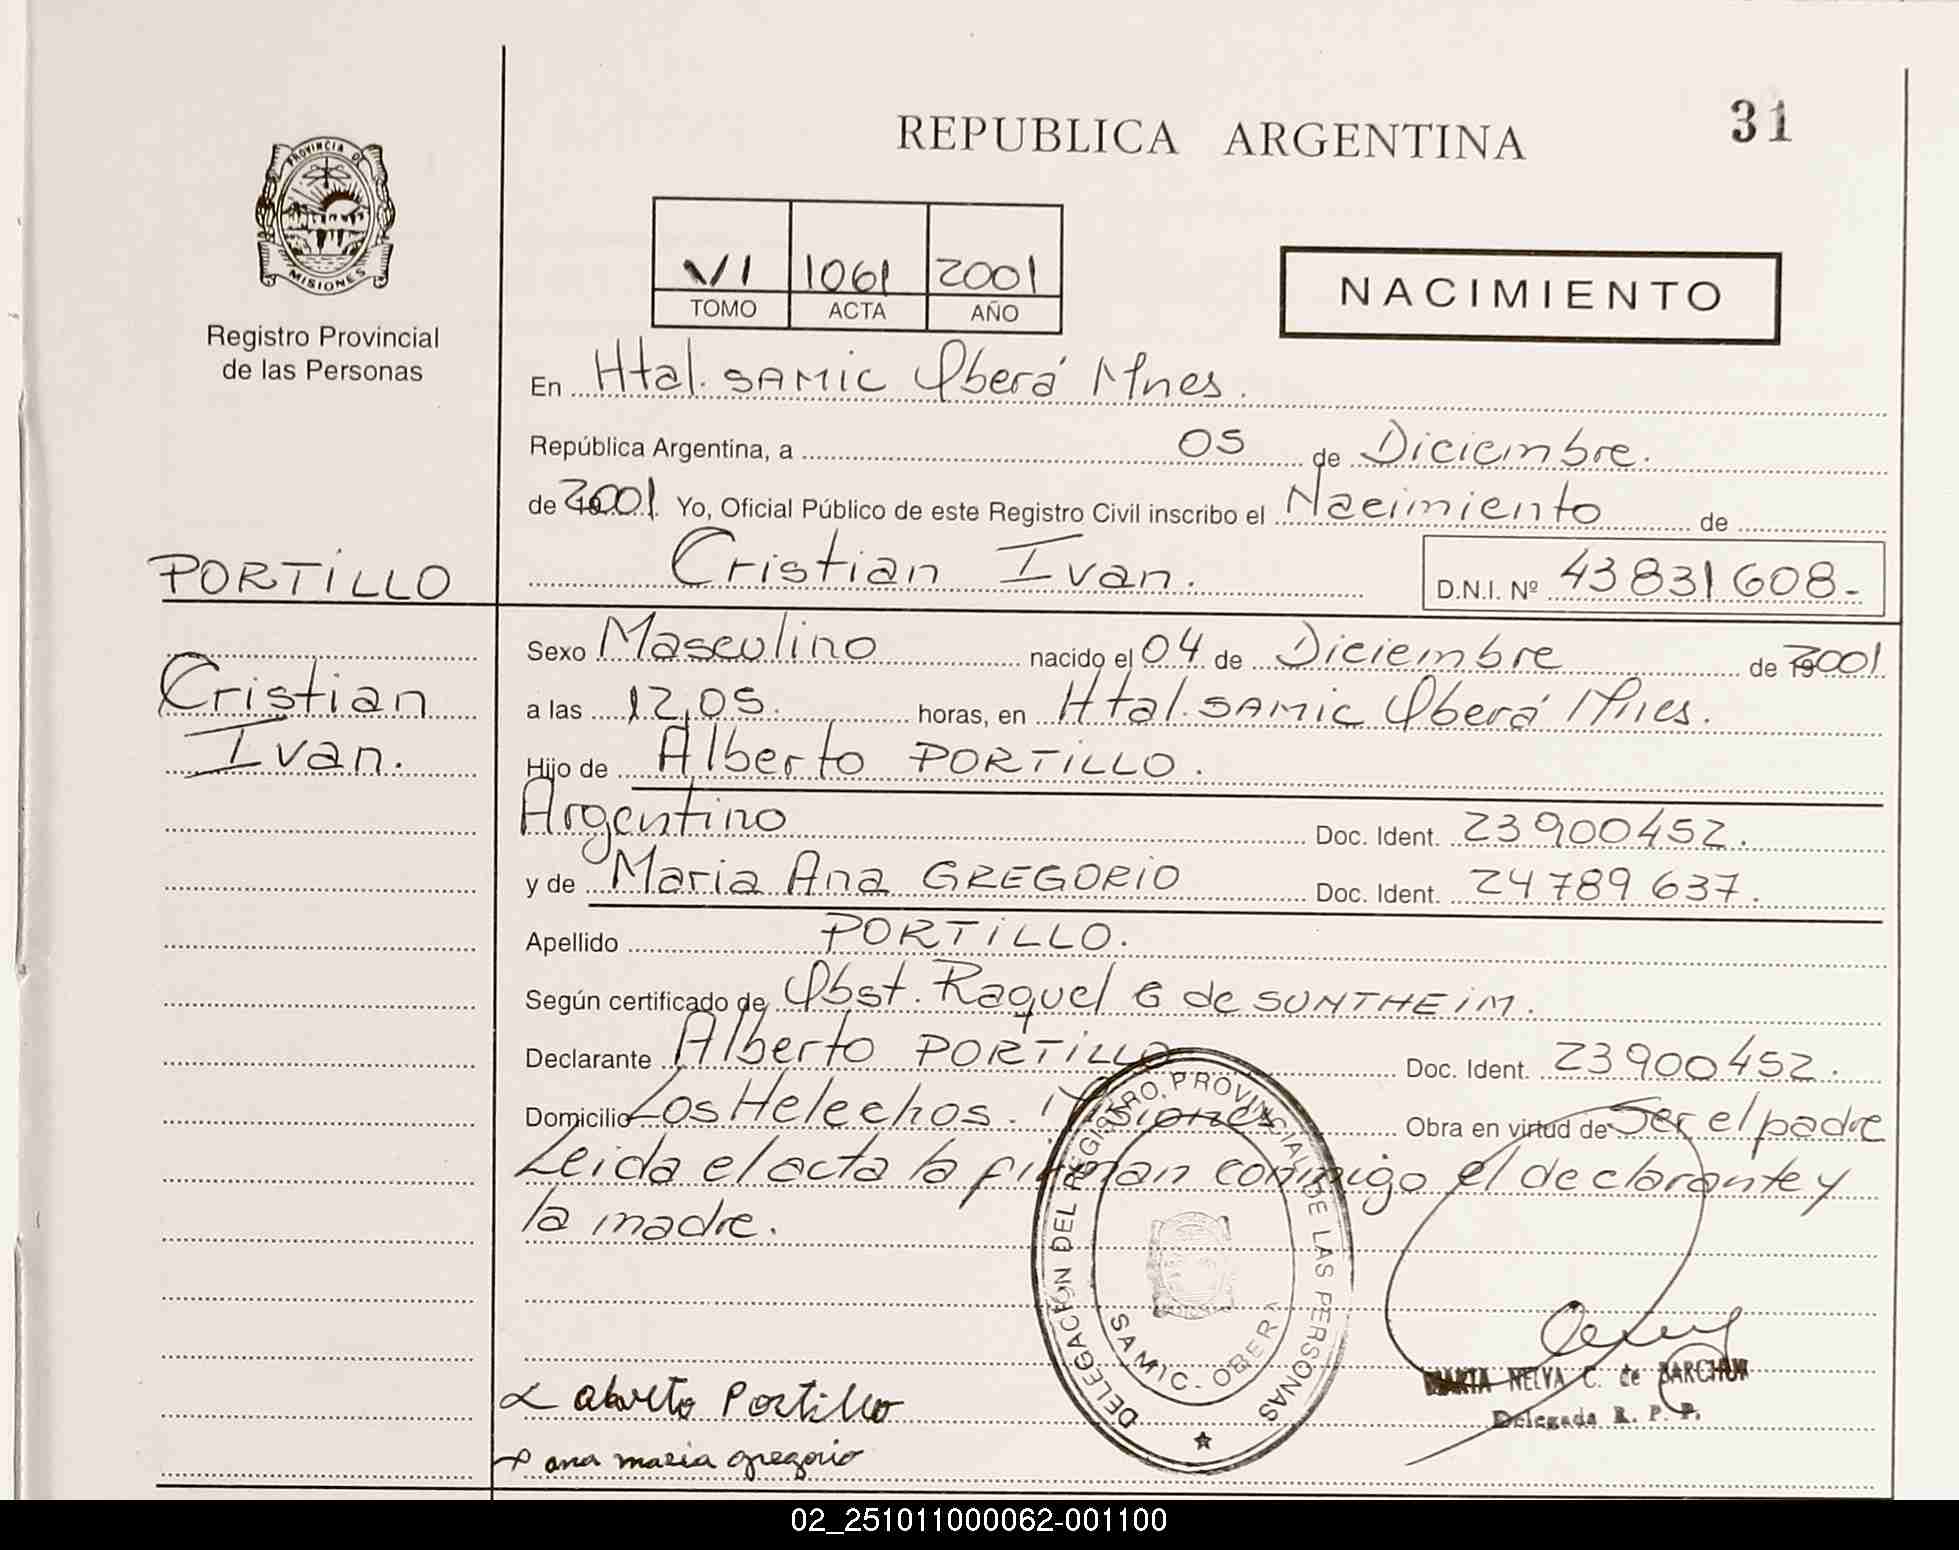 REPUBLICA ARGENTINA
31
PROVINCIA DE
MISIONES
Registro Provincial
de las Personas
VI 1061 2001
TOMO ACTA AÑO
NACIMIENTO
En Htal. SAMIC Oberá Mnes.
República Argentina, a 05 de Diciembre.
de 2001 Yo, Oficial Público de este Registro Civil inscribo el Nacimiento de
PORTILLO
Cristian Ivan.
D.N.I. Nº 43831608-
Cristian
Ivan.
Sexo Masculino nacido el 04 de Diciembre de 2001
a las 12,05. horas, en Htal. SAMIC Oberá Mnes.
Hijo de Alberto PORTILLO.
Argentino Doc. Ident. 23900452.
y de Maria Ana GREGORIO Doc. Ident. 24789637.
Apellido PORTILLO.
Según certificado de Obst. Raquel G de SUNTHEIM.
Declarante Alberto PORTILLO Doc. Ident. 23900452.
Domicilio Los Helechos. Misiones Obra en virtud de Ser el padre
Leida el acta la firman conmigo el declarante y
la madre.
DELEGACION DEL REGISTRO PROVINCIAL DE LAS PERSONAS
SAMIC - OBERA
NELVA C. de
Delegada R. P. P.
Portillo
ana maria gregorio
02_251011000062-001100